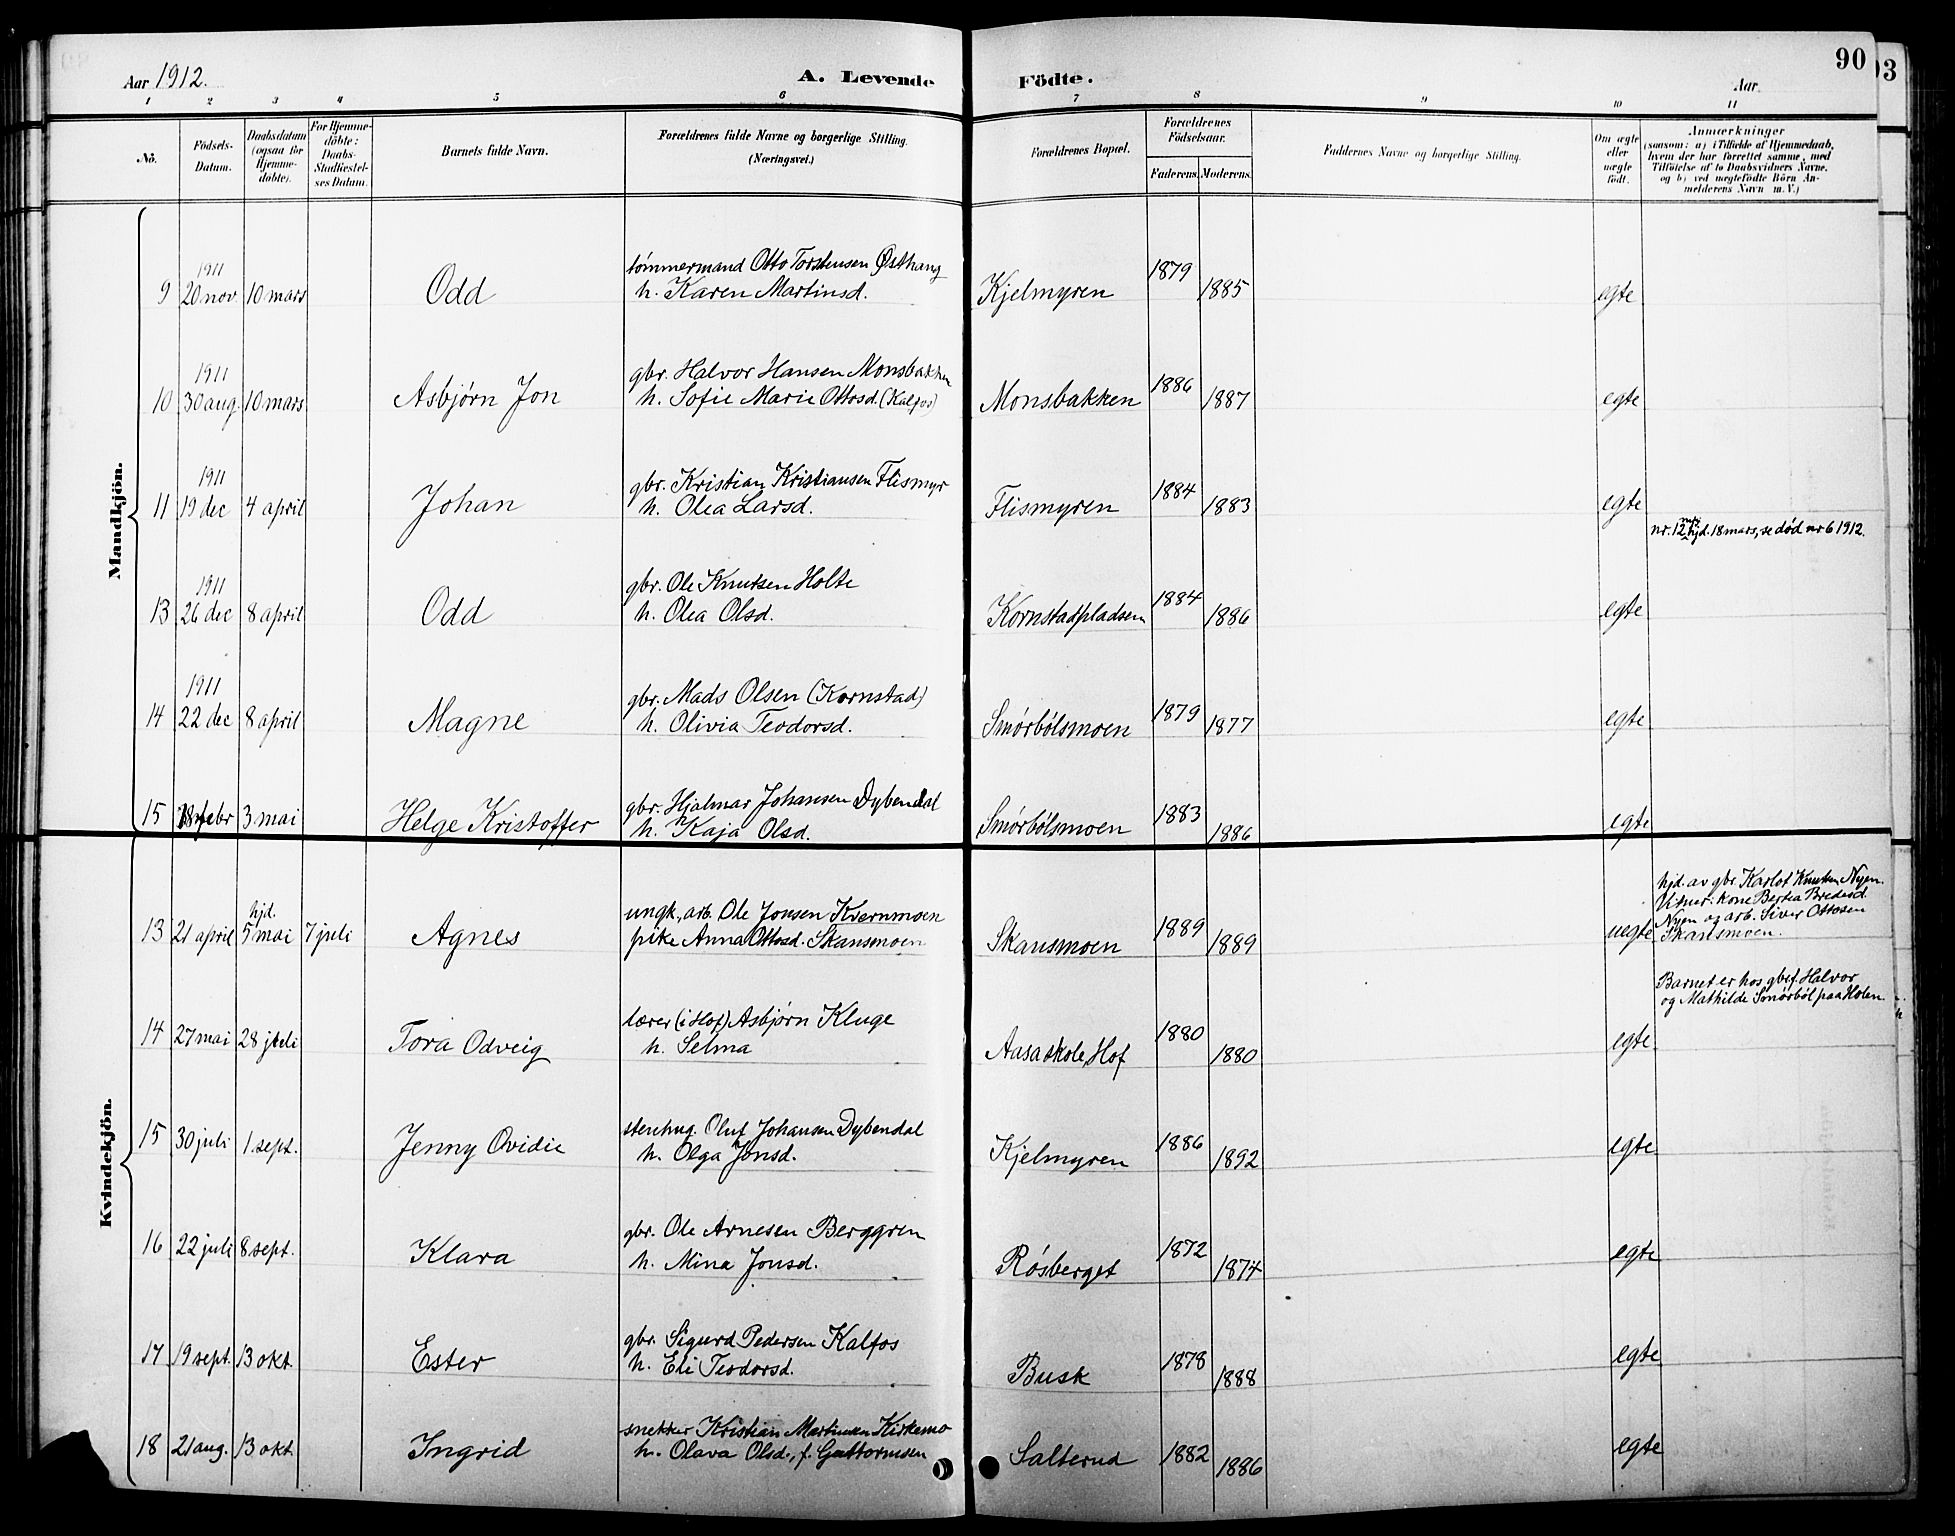 Aar 1912.
A. Levende Födte.
Aar
90
1 2 3 4 5 6 7 8 9 10 11
No.
Födsels-
Datum.
Daabsdatum
(ogsaa for
Hjemme-
döbte).
For Hjemme-
döbte:
Daabs-
Stadfæstel-
ses Datum.
Barnets fulde Navn.
Forældrenes fulde Navne og borgerlige Stilling.
(Næringsvei.)
Forældrenes Bopæl.
Forældrenes
Födselsaar.
Faderens. Moderens.
Faddernes Navne og borgerlige Stilling.
Om ægte
eller
uægte
födt.
Anmærkninger
(saasom: a) i Tilfælde af Hjemmedaab,
hvem der har forrettet samme, med
Tilföielse af to Daabsvidners Navne.
og b) ved uægtefödte Börn An-
melderens Navn m. V.)
Mandkjön.
1911 tømmermand Otto Torstensen Østhang 1879
9 20 nov. 10 mars Odd h. Karen Martinsd. Kjelmyren 1885 egte
1911 gbr. Halvor Hansen Monsbakken 1886
10 30 aug. 10 mars Asbjørn Jon h. Sofie Marie Ottosd. (Kalfos) Monsbakken 1887 egte
1911 gbr. Kristian Kristiansen Flismyr 1884
11 19 dec 4 april Johan h. Olea Larsd. Flismyren 1883 egte
nr. 12 hjd. 18 mars, se død nr 6 1912.
1911 gbr. Ole Knutsen Holte 1884
13 26 dec 8 april Odd h. Olea Olsd. Kornstadpladsen 1886 egte
1911 gbr. Mads Olsen (Kornstad) 1879
14 22 dec 8 april Magne h. Olivia Teodorsd. Smørbølsmoen 1877 egte
gbr. Hjalmar Johansen Dybendal 1883
15 febr 3 mai Helge Kristoffer h. Kaja Olsd. Smørbølsmoen 1886 egte
Kvindekjön.
hjd. ungk., arb. Ole Jonsen Kvernmoen 1889
13 21 april 5 mai 7 juli Agnes pike Anna Ottosd. Skansmoen Skansmoen 1889 uegte
hjd. av gbr. Karlot Knutsen Nyen.
Vitner: kone Bertea Bredesd.
Nyen og arb. Siver Ottosen
Skansmoen.
Barnet er hos gbrf. Halvor
og Mathilde Smørbøl paa Holen.
lærer (i Hof) Asbjørn Kluge 1880
14 27 mai 28 juli Tora Odveig h. Selma Aasa skole, Hof 1880 egte
stenhug. Oluf Johansen Dybendal 1886
15 30 juli 1. sept. Jenny Ovidie h. Olga Jonsd. Kjelmyren 1892 egte
gbr. Ole Arnesen Berggren 1872
16 22 juli 8 sept. Klara h. Mina Jonsd. Røsberget 1874 egte
gbr. Sigurd Pedersen Kalfos 1878
17 19 sept. 13 okt. Ester h. Eli Teodorsd. Busk 1888 egte
snekker Kristian Martinsen Kirkemo 1882
18 21 aug. 13 okt. Ingrid h. Olava Olsd., f. Guttormsen Salterud 1886 egte